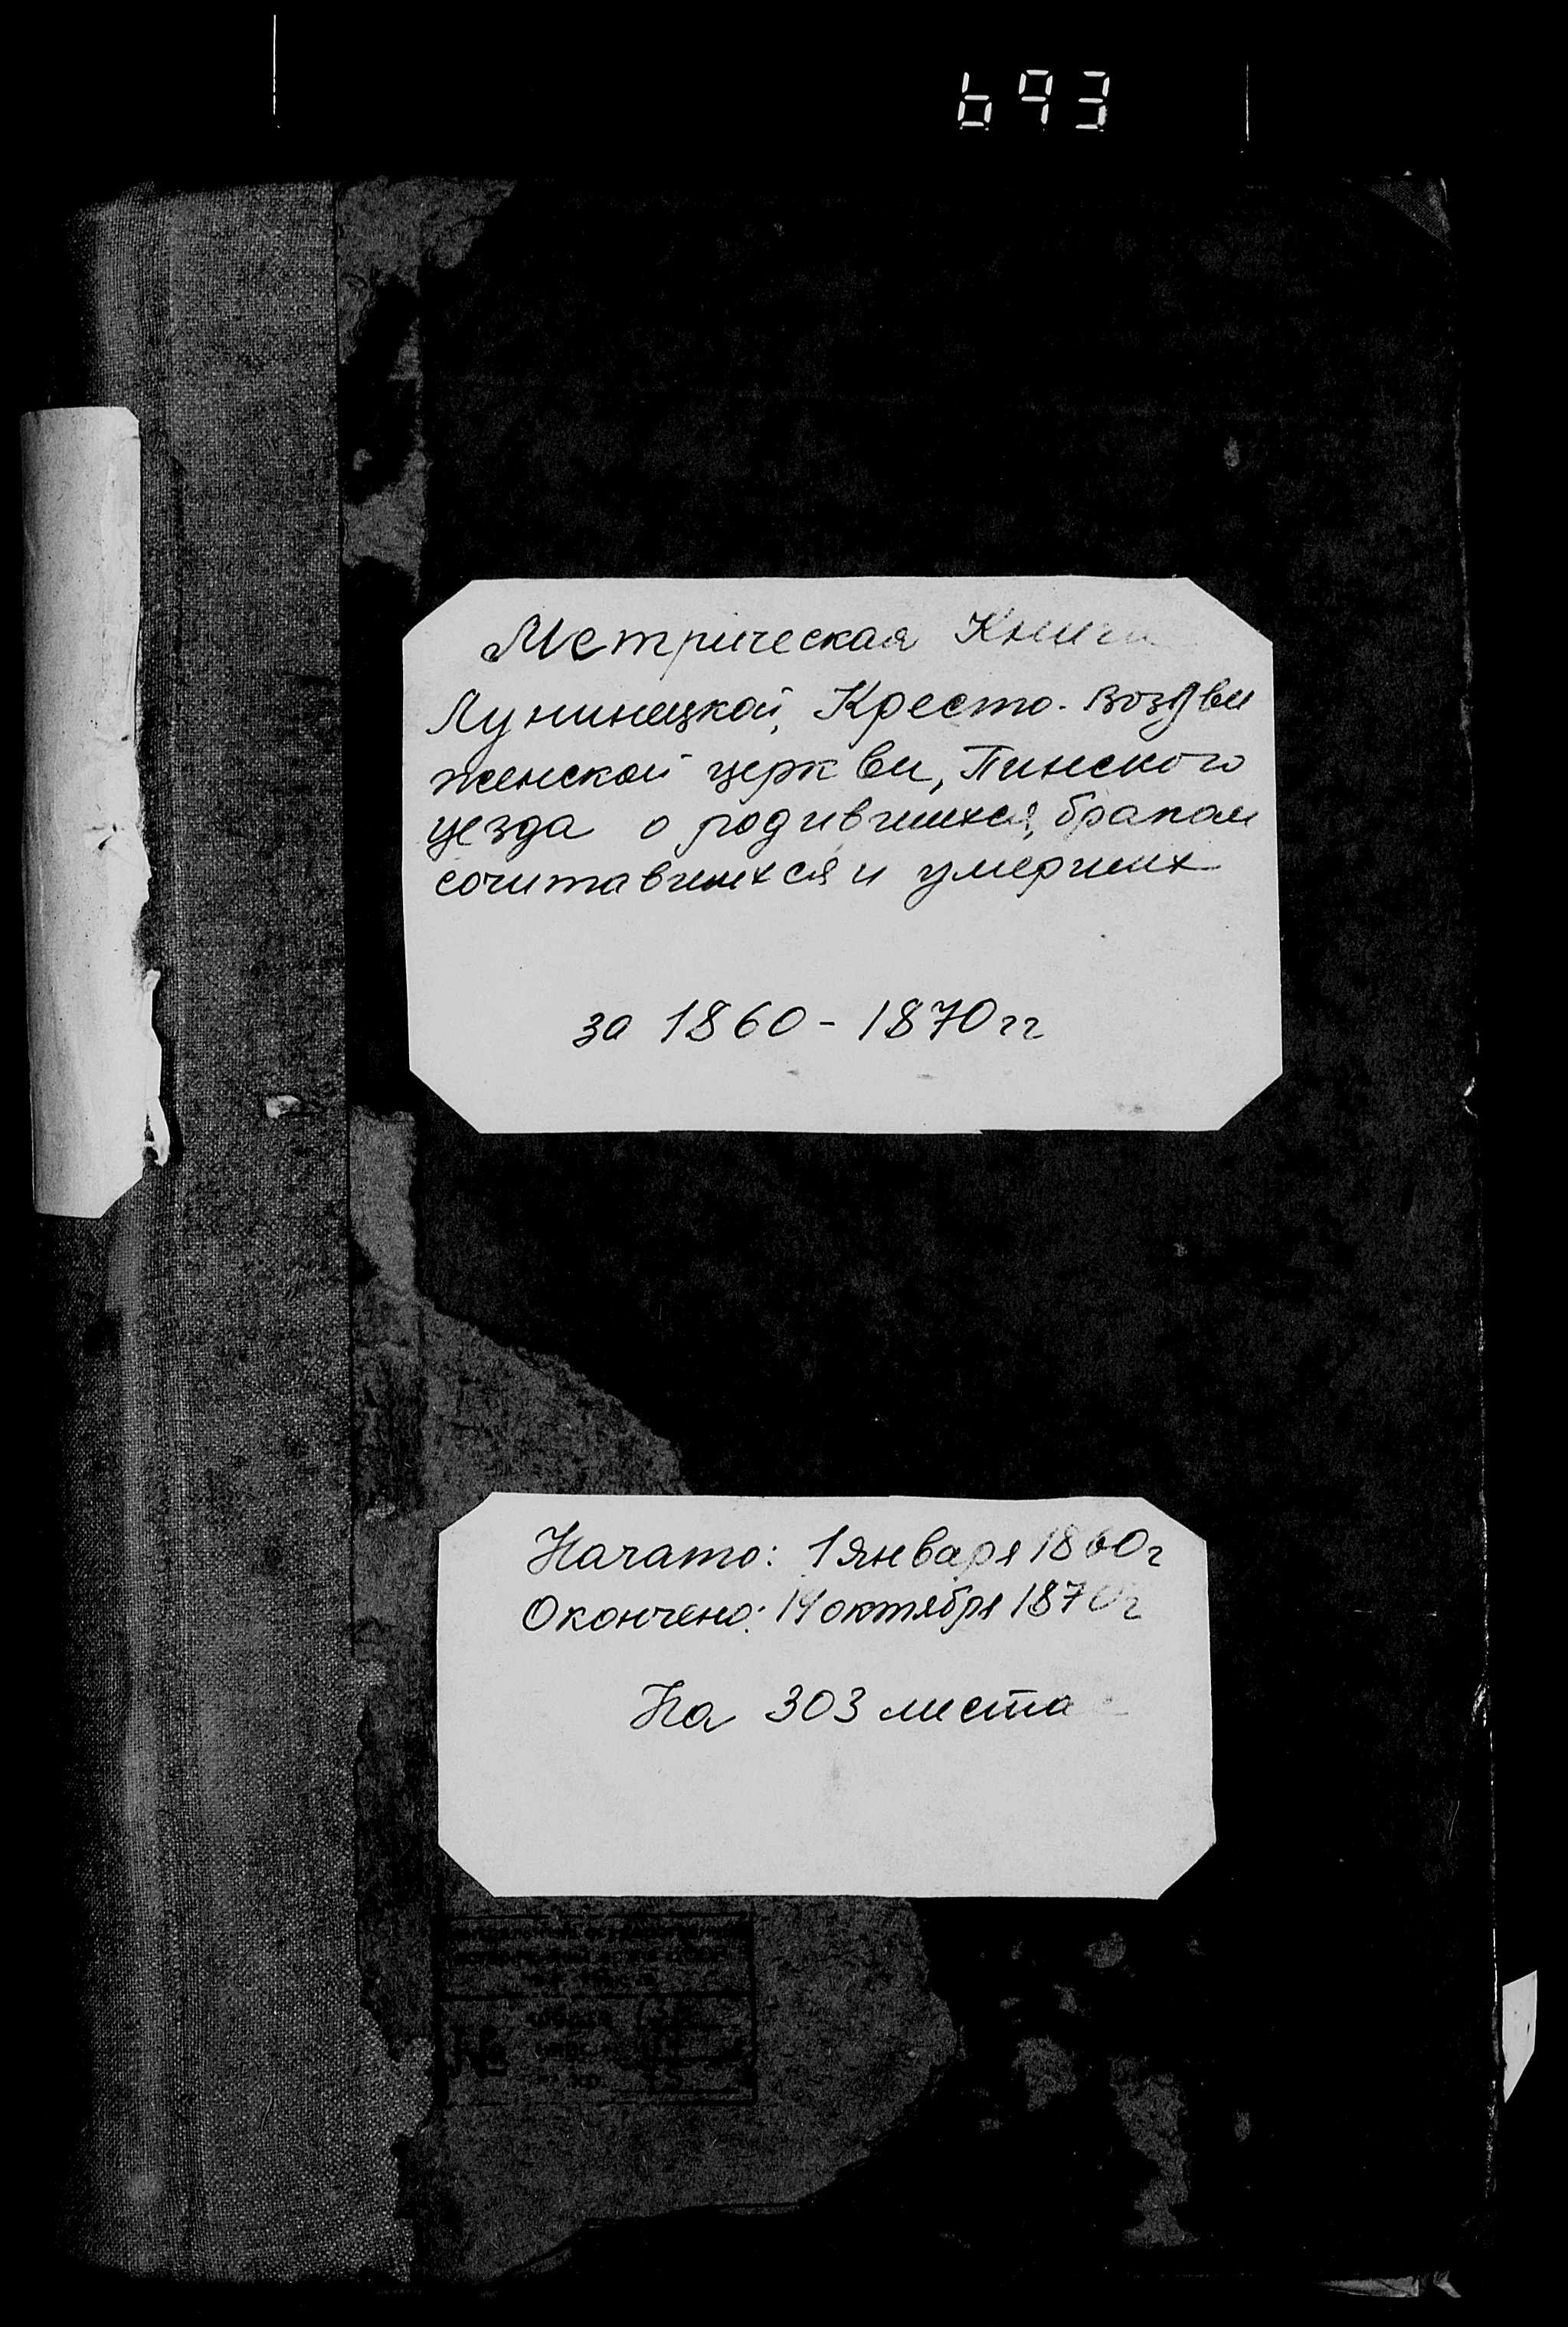 693
Метрическая Книга
Лунинецкой, Кресто-Воздви
женской церкви, Пинского
уезда о родившихся, браком
сочитавшихся и умерших
за 1860 - 1870 гг
Начато: 1 января 1860 г
Окончено: 14 октября 1870 г
На 303 листа